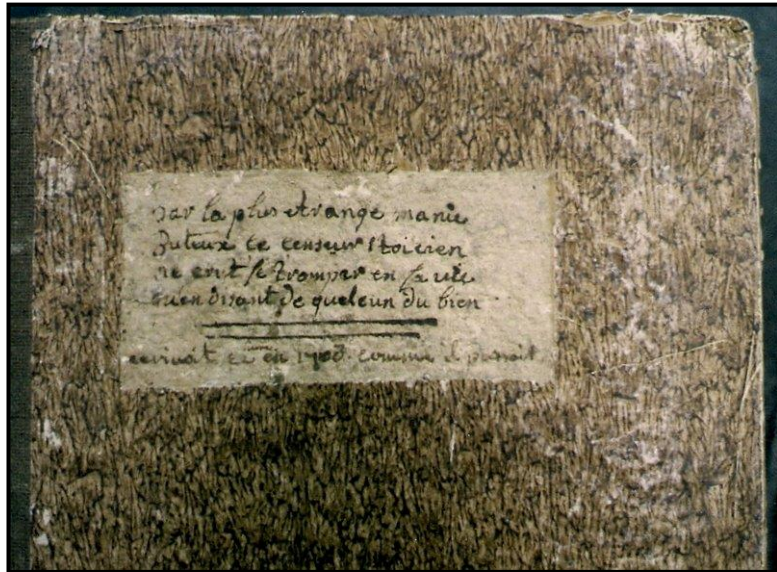 par la plus etrange manie
Duteux ce censeur stoicien
ne crut se tromper en sa vie
qu'en disant de quelcun du bien
ecrivoit en comme il pensoit